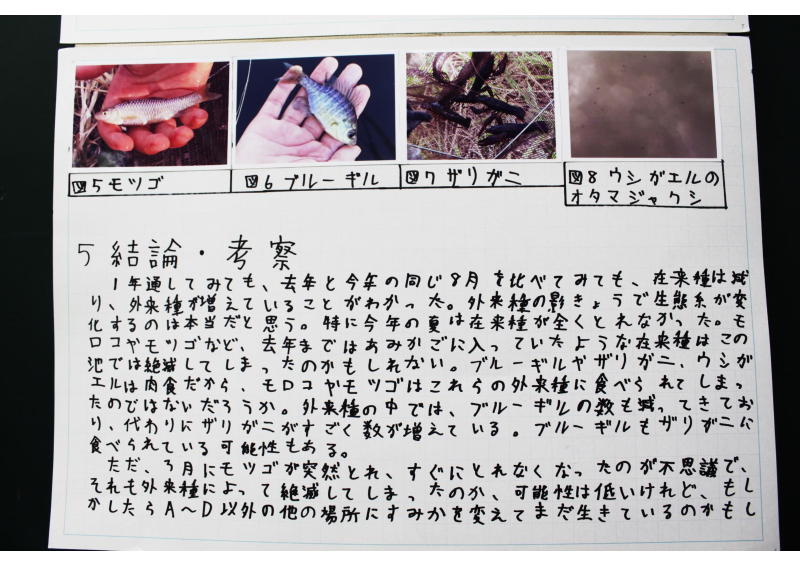 図5モツゴ
図6ブルーギル
図7ザリガニ
図8ウシガエルの
オタマジャクシ
5 結論・考察
1年通してみても、去年と今年の同じ8月を比べてみても、在来種は減
り、外来種が増えていることがわかった。外来種の影きょうで生態系が変
化するのは本当だと思う。特に今年の夏は在来種が全くとれなかった。モ
ロコやモツゴなど、去年まではあみかごに入っていたような在来種はこの
池では絶滅してしまったのかもしれない。ブルーギルやザリガニ、ウシガ
エルは肉食だから、モロコヤモツゴはこれらの外来種に食べられてしまっ
たのではないだろうか。外来種の中では、ブルーギルの数も減ってきてお
り、代わりにザリガニがすごく数が増えている。ブルーギルもザリガニに
食べられている可能性もある。
ただ、3月にモツゴが突然とれ、すぐにとれなくなったのが不思議で、
それも外来種によって絶滅してしまったのか、可能性は低いけれど、もし
かしたらA～D以外の他の場所にすみかを変えてまだ生きているのかもし